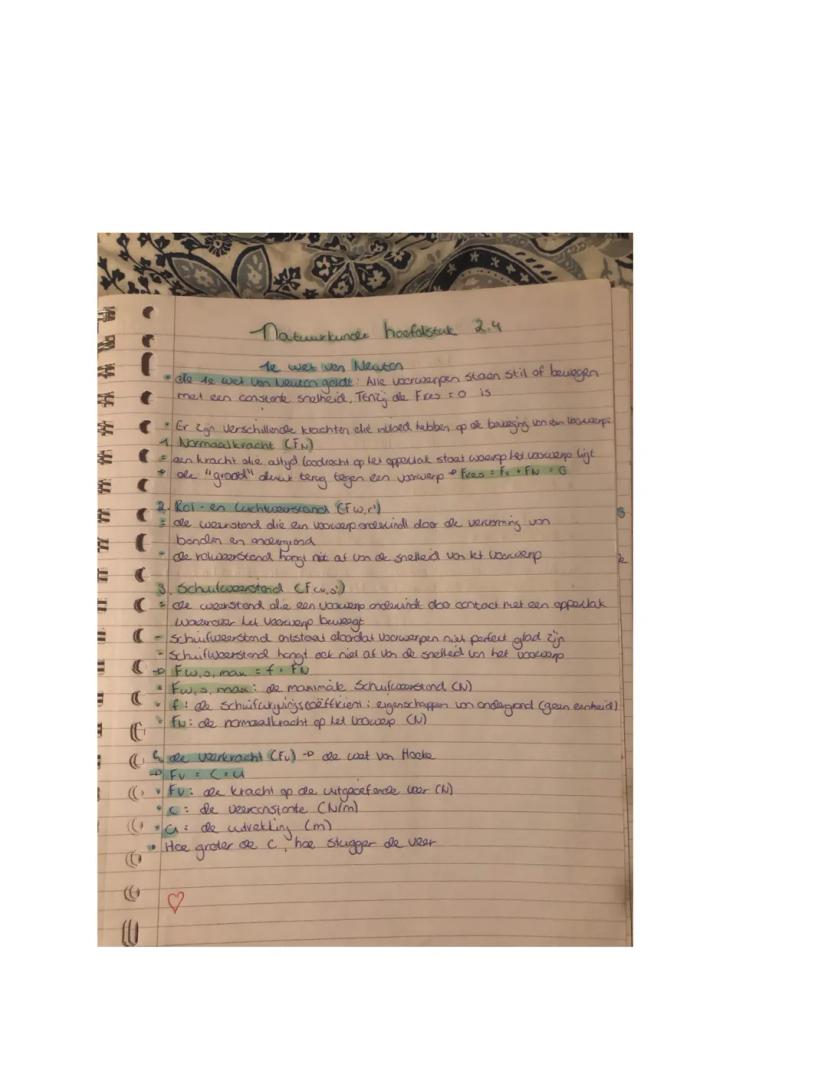 Natuurkunde hoofdstuk 2.4
1e wet van Newton
• de 1e wet van Newton geldt: Alle voorwerpen staan stil of bewegen
met een constante snelheid. Tenzij de Fres = 0 is
• Er zijn verschillende krachten die invloed hebben op de beweging van een voorwerp:
1. Normaalkracht (FN)
= een kracht die altijd loodrecht op het oppervlak staat waarop het voorwerp ligt
• de "grond" duwt terug tegen een voorwerp
2. Rol- en luchtweerstand (Fw,r)
= de weerstand die een voorwerp ondervindt door de vervorming van
banden en ondergrond
• de rolweerstand hangt niet af van de snelheid van het voorwerp
3. Schuifweerstand (Fw,s)
= de weerstand die een voorwerp ondervindt door contact met een oppervlak
waarover het voorwerp beweegt
- Schuifweerstand ontstaat doordat voorwerpen niet perfect glad zijn
- Schuifweerstand hangt ook niet af van de snelheid van het voorwerp
→ Fw,s,max = f · FN
• Fw,s,max: de maximale Schuifweerstand (N)
• f: de Schuifwrijvingscoëfficient: eigenschappen van ondergrond (geen eenheid)
• FN: de normaalkracht op het voorwerp (N)
4. de veerkracht (Fv) → de wet van Hooke
→ Fv = C · u
• Fv: de kracht op de uitgeoefende veer (N)
• C: de veerconstante (N/m)
• u: de uitrekking (m)
• Hoe groter de C, hoe stugger de veer